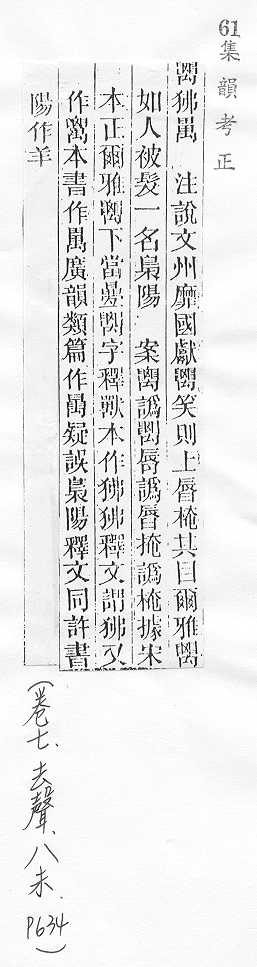 61
集韻考正
狒 注說文州靡國獻笑則上脣其目爾雅
如人被髮一名梟陽 案譌唇譌脣掩譌據宋
本正爾雅下當疊字釋獸本作狒狒釋文謂狒又
作本書作廣韻類篇作疑誤梟陽釋文同許書
陽作羊
(卷七、去聲、八未、P634)